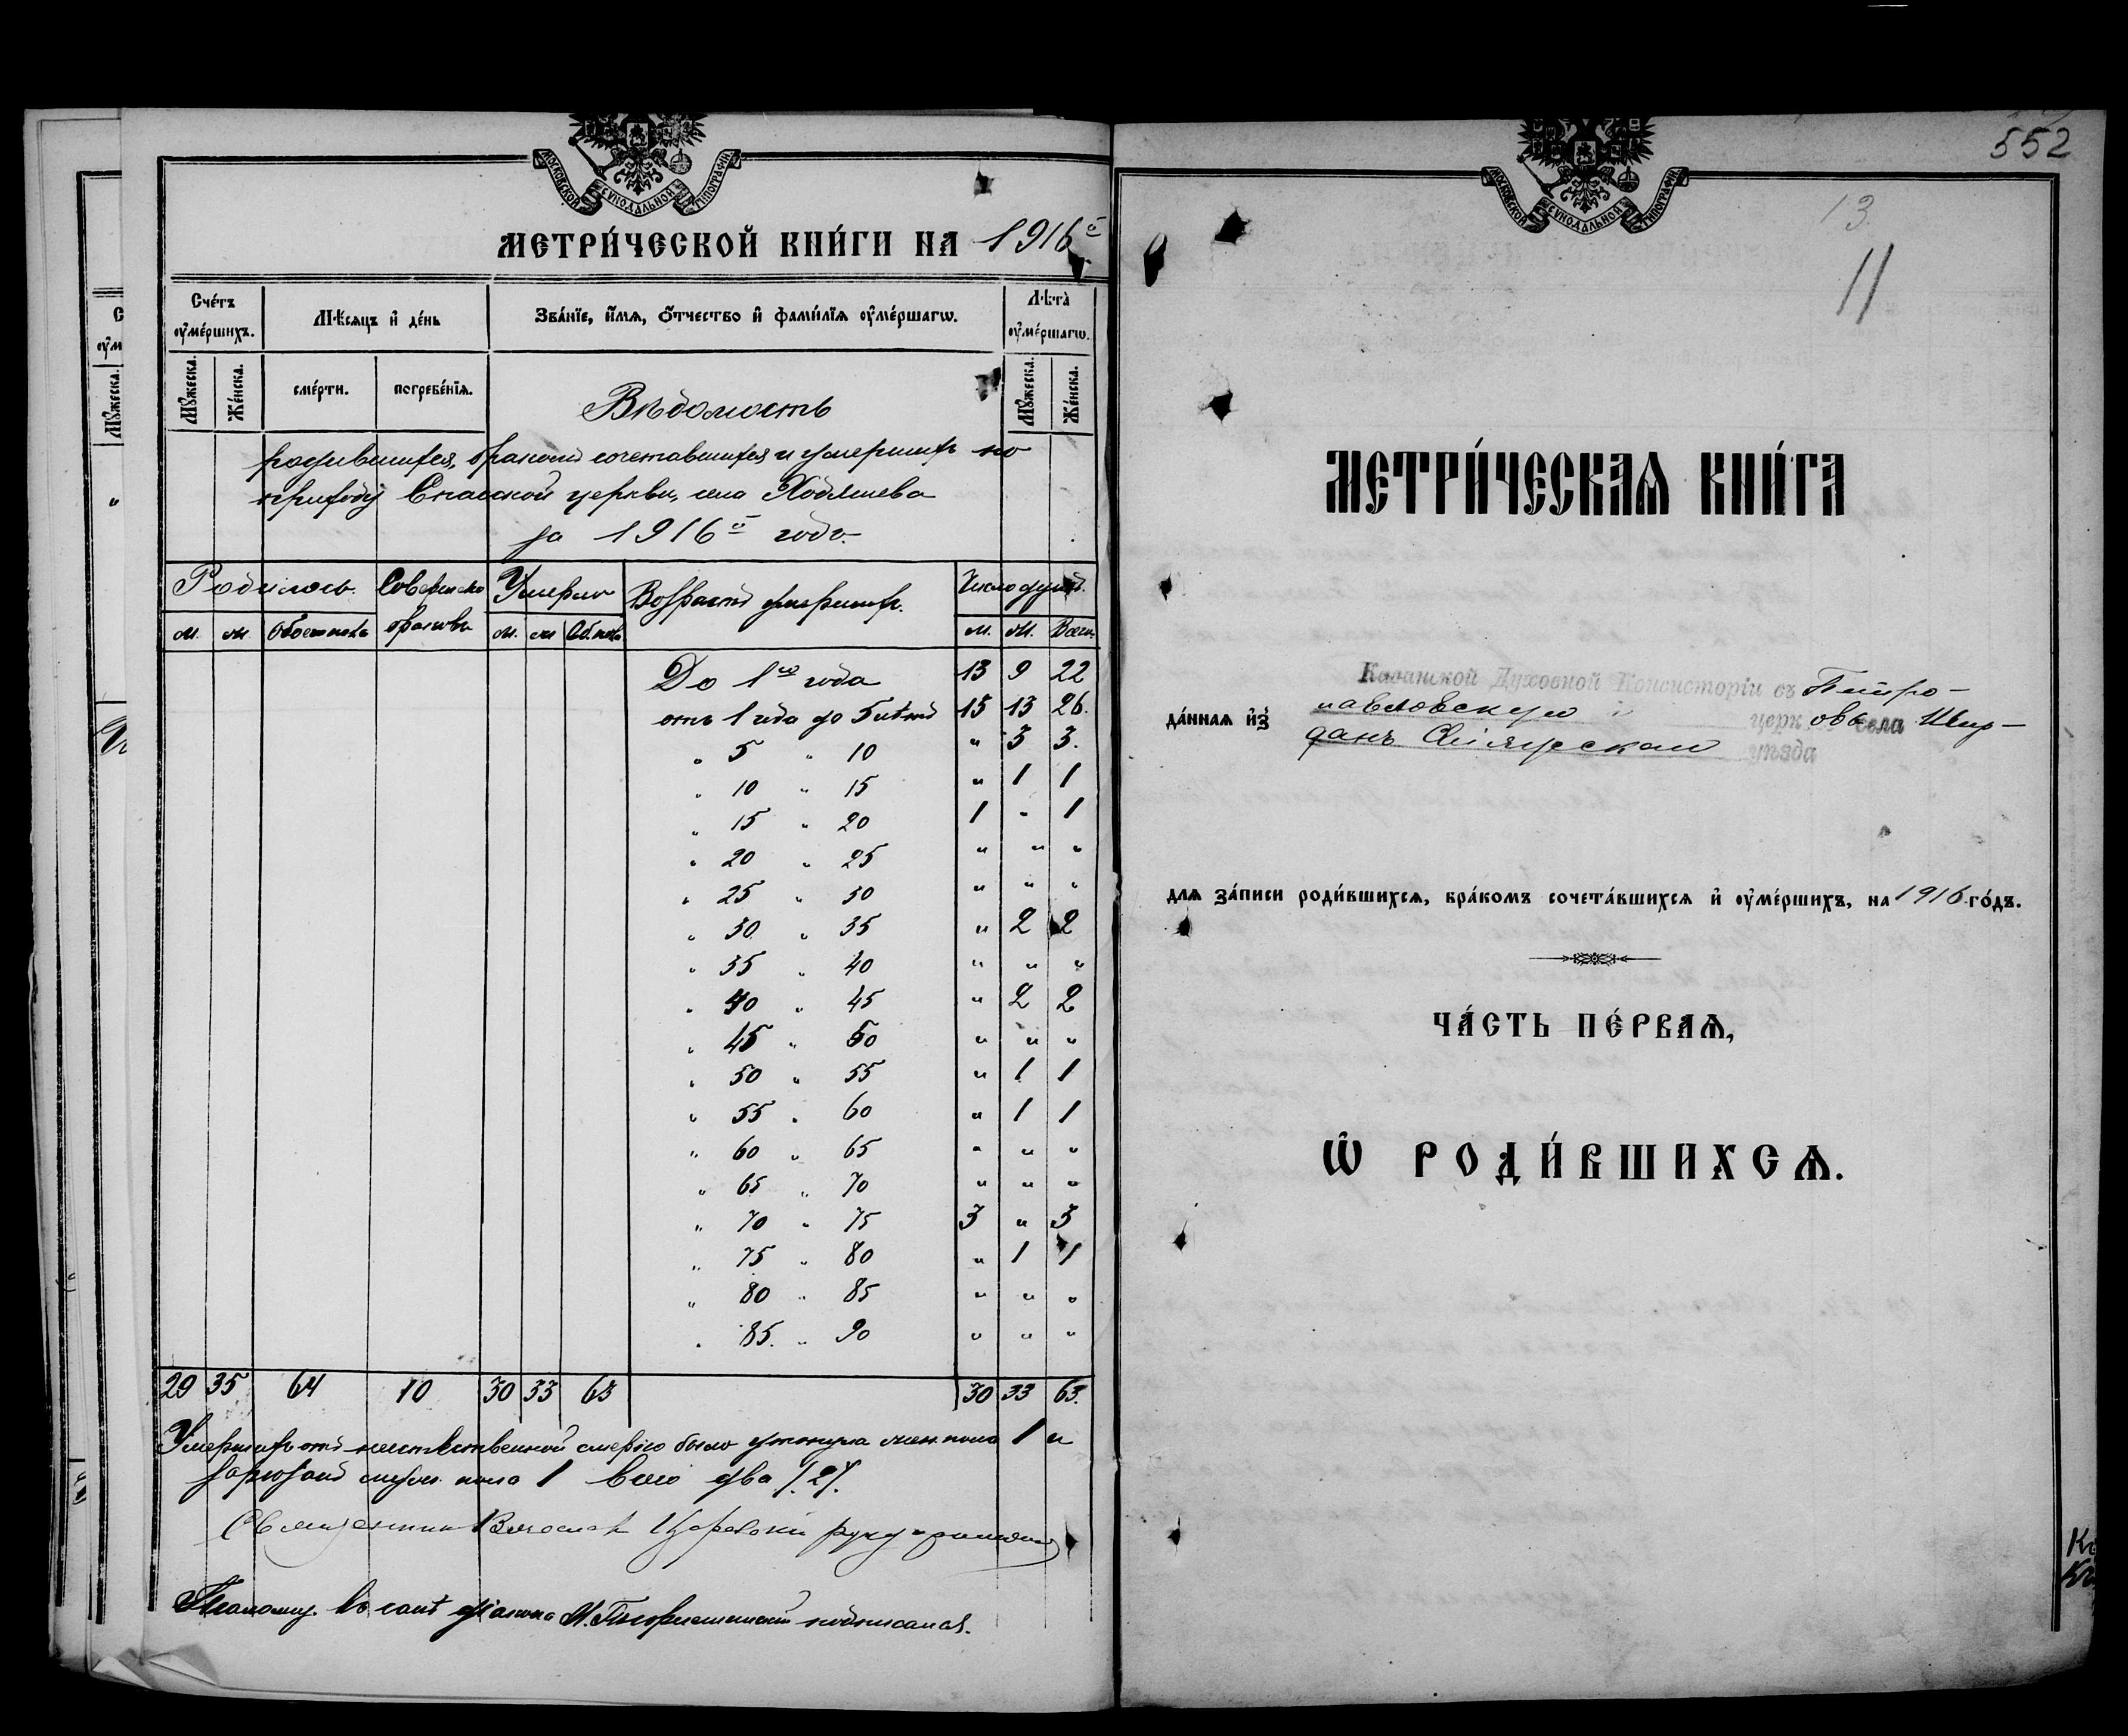 МОСКОВСКОЙ СѴНОДАЛЬНОЙ ТИПОГРАФІИ
МЕТРИ́ЧЕСКОЙ КНИ́ГИ НА 1916й
Сче́тъ оу҆ме́ршихъ.
Мѣ́сяцъ и҆ де́нь
Зва́нїе, и҆́мѧ, ѻ҆́тчество и҆ фами́лїѧ оу҆ме́ршагѡ.
Лѣта̀ оу҆ме́ршагѡ.
Мꙋ́жеска. Же́нска. сме́рти. погребе́нїѧ. Мꙋ́жеска. Же́нска.
Вѣдомость
родившихся, бракомъ сочетавшихся и умершихъ по
приходу Спасской церкви, села Ходяшева
за 1916й годъ.
Родилось. Совершено браковъ Умерло Возрастъ умершихъ. Число душъ.
м. ж. Обоего пола м. ж. Об. пола м. ж. Всего.
До 1го года 13 9 22
отъ 1 года до 5 лѣтъ 13 13 26.
„ 5 „ 10 „ 3 3.
„ 10 „ 15 „ 1 1
„ 15 „ 20 1 „ 1
„ 20 „ 25 „ „ „
„ 25 „ 30 „ „ „
„ 30 „ 35 „ 2 2
„ 35 „ 40 „ „ „
„ 40 „ 45 „ 2 2
„ 45 „ 50 „ „ „
„ 50 „ 55 „ 1 1
„ 55 „ 60 „ 1 1
„ 60 „ 65 „ „ „
„ 65 „ 70 „ „ „
„ 70 „ 75 3 „ 3
„ 75 „ 80 „ 1 1
„ 80 „ 85 „ „ „
„ 85. „ 90 „ „ „
29 35 64 10 30 33 63 30 33 63.
Умершихъ отъ неестественной смертію было жен. пола 1 и
пола 1 всего два /.2/.
Священникъ Царевскій руку приложилъ
Псаломщ. въ санѣ діакона подписался.
552
13.
11
МОСКОВСКОЙ СѴНОДАЛЬНОЙ ТИПОГРАФІИ
МЕТРИ́ЧЕСКАѦ КНИ́ГА
да́ннаѧ и҆зъ Казанской Духовной Консисторіи въ Петро-
павловскую церковь села Шир-
данъ Свіяжскаго уѣзда
длѧ за́писи роди́вшихсѧ, бра́комъ сочета́вшихсѧ и҆ оу҆ме́ршихъ, на 1916 го́дъ.
ЧА́СТЬ ПЕ́РВАѦ,
Ѽ РОДИ́ВШИХСѦ.